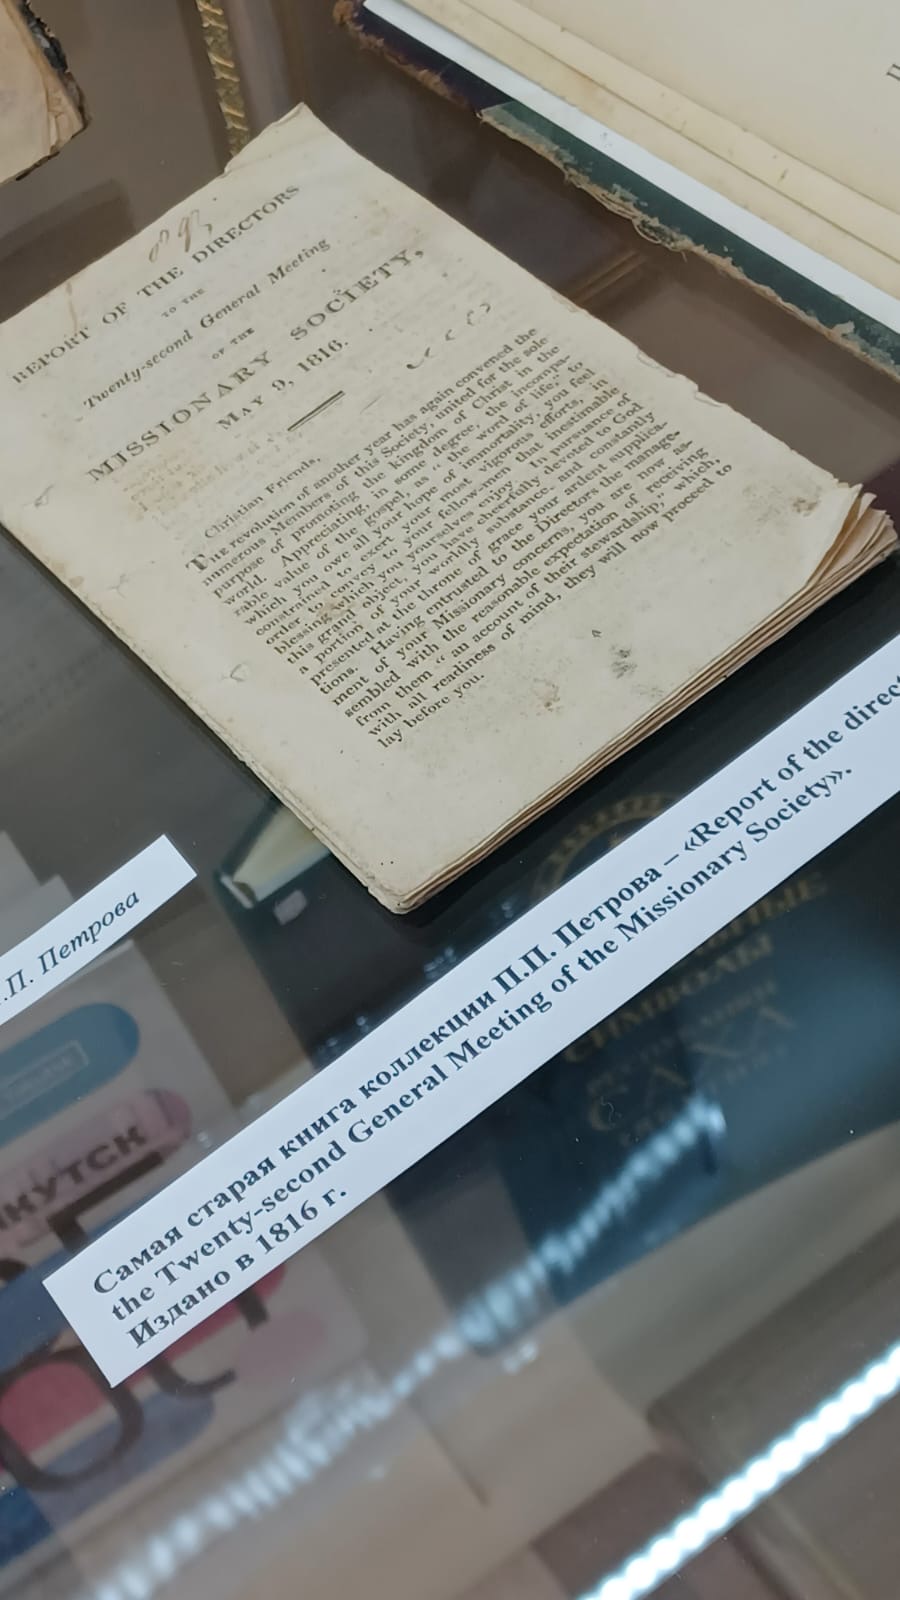 REPORT OF THE DIRECTORS
TO THE
Twenty-second General Meeting
OF THE
MISSIONARY SOCIETY,
MAY 9, 1816.
Christian Friends,
THE revolution of another year has again convened the
numerous Members of this Society, united for the sole
purpose of promoting the kingdom of Christ in the
world. Appreciating, in some degree, the incompa-
rable value of the gospel, as “ the word of life,” to
which you owe all your hope of immortality, you feel
constrained to exert your most vigorous efforts, in
order to convey to your fellow-men that inestimable
blessing which you yourselves enjoy. In pursuance of
this grand object, you have cheerfully devoted to God
a portion of your worldly substance, and constantly
presented at the throne of grace your ardent supplica-
tions. Having entrusted to the Directors the manage-
ment of your Missionary concerns, you are now as-
sembled with the reasonable expectation of receiving
from them “ an account of their stewardship,” which,
with all readiness of mind, they will now proceed to
lay before you.
.П. Петрова
Самая старая книга коллекции П.П. Петрова – «Report of the direct
the Twenty-second General Meeting of the Missionary Society».
Издано в 1816 г.
СИМВОЛЫ
САХА